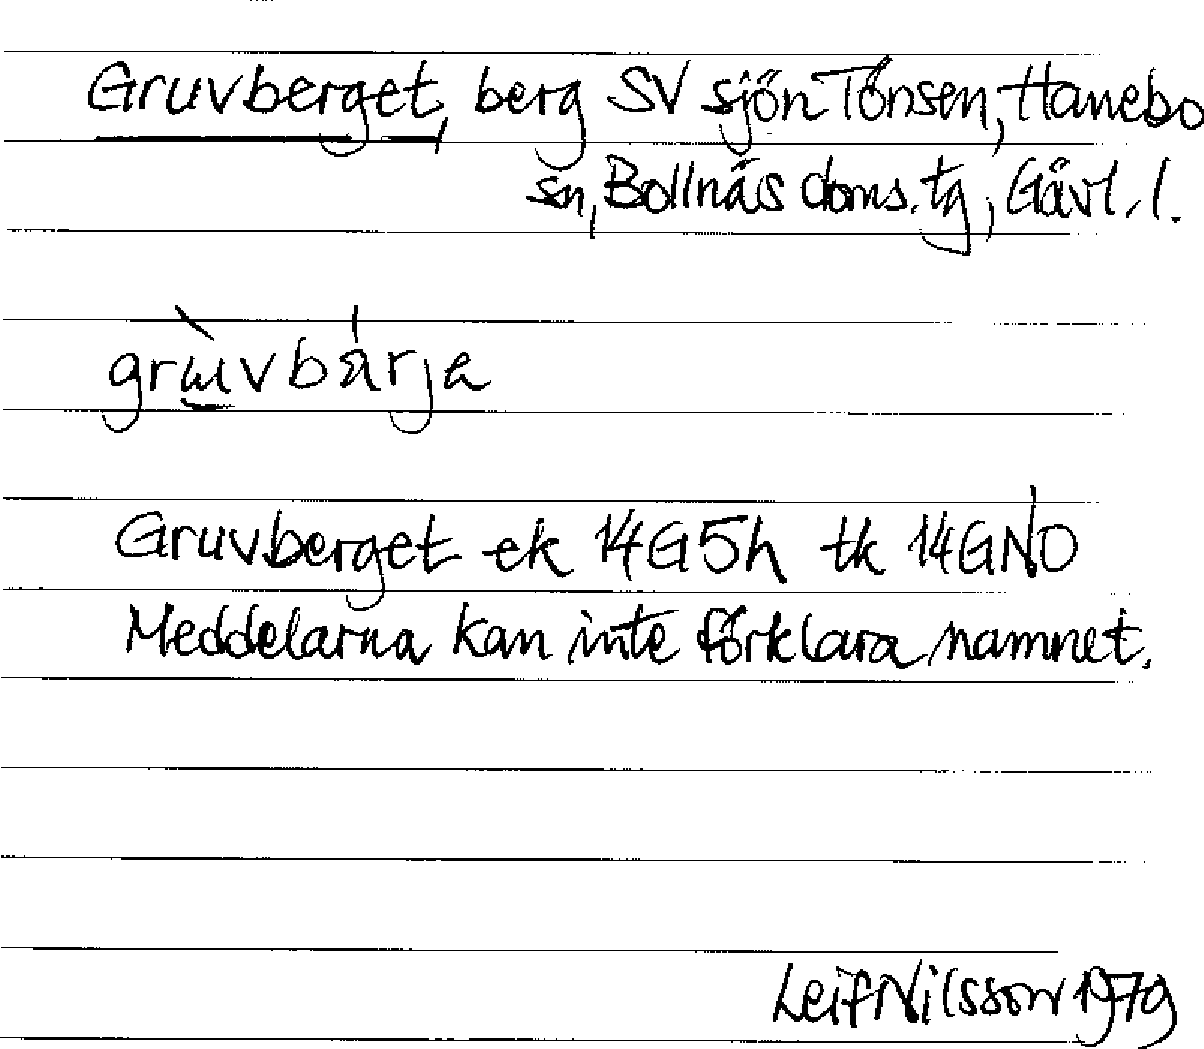 Gruvberget, berg SV sjön Tönsen, Hanebo
sn, Bollnäs doms. tg, Gävl. l.
grùvbä́rja
Gruvberget ek 14G5h tk 14GNO
Meddelarna kan inte förklara namnet.
Leif Nilsson 1979